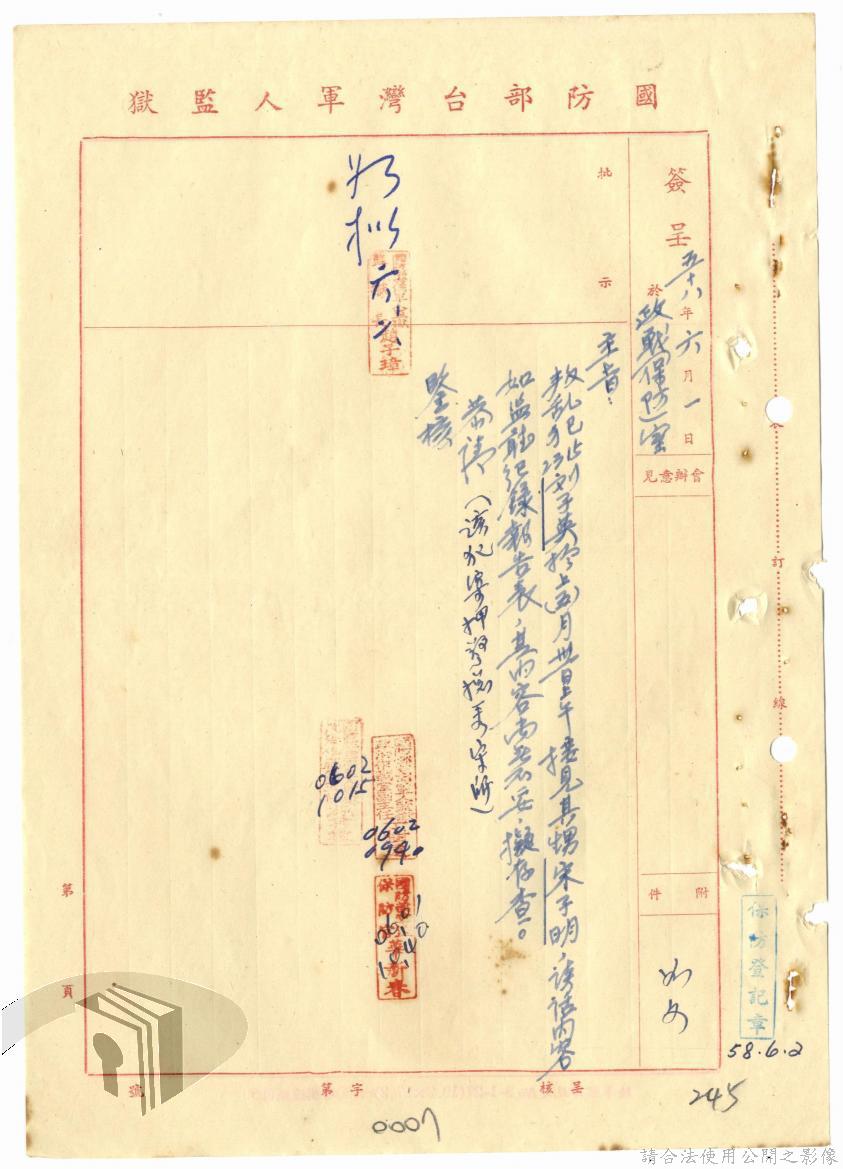 國防部台灣軍人監獄
簽呈
五十八年六月一日
於政戰保防室
會辦意見
附件
如文
批示
如擬
六、二
趙子璋
主旨：
叛亂犯劉子英於上(五)月卅一日上午接見其甥宋子明，談話內容
如監聽紀錄報告表，其內容尚無不妥，擬存查。
恭請（該犯寄押警總看守所）
鑒核
0602
1015
0602
0940
0601
1040
保防
保防登記章
58.6.2
訂
線
第
頁
呈核
字第
號
245
0007
請合法使用公開之影像